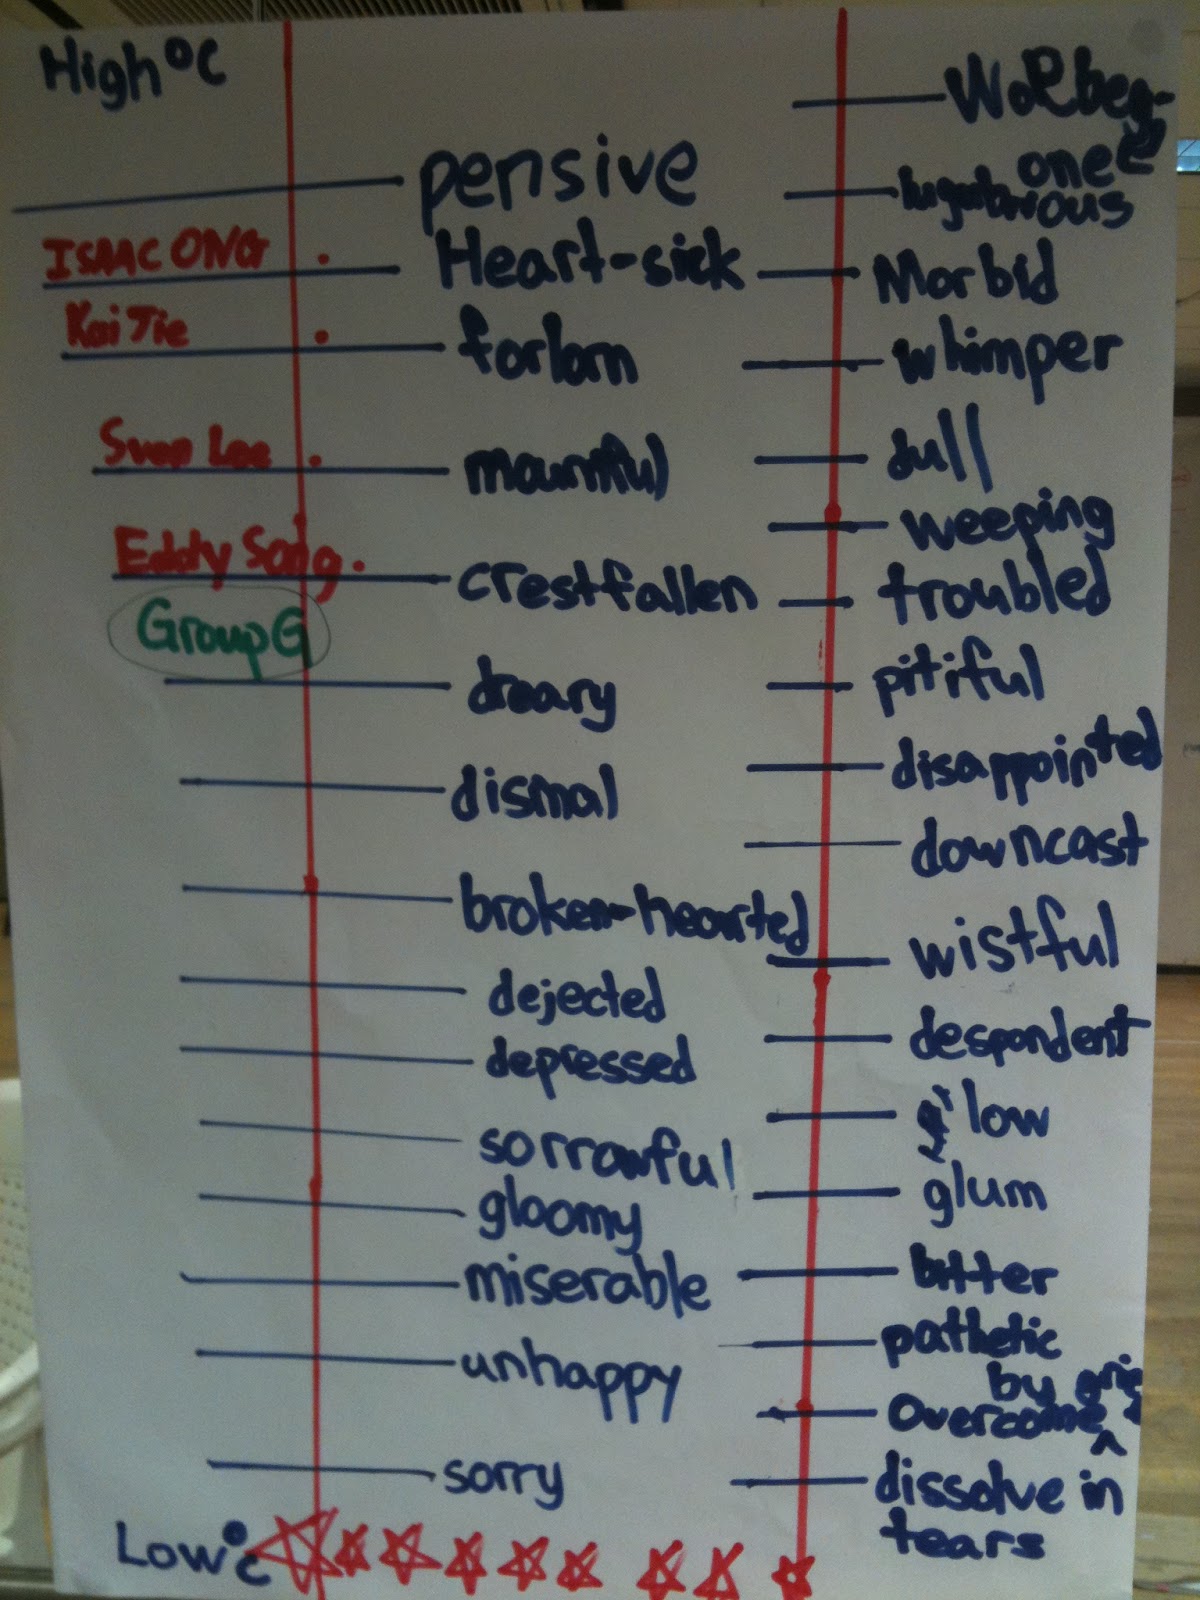 High°C
pensive
ISAAC ONG .
Heart-sick
Kai Jie .
forlorn
Sven Lee .
mournful
Eddy Song.
crestfallen
Group G
dreary
dismal
broken-hearted
dejected
depressed
sorrowful
gloomy
miserable
unhappy
sorry
Low°C
Woebeg-
one
lugubrious
Morbid
whimper
dull
weeping
troubled
pitiful
disappointed
downcast
wistful
despondent
low
glum
bitter
pathetic
by grief
Overcome ^
dissolve in
tears